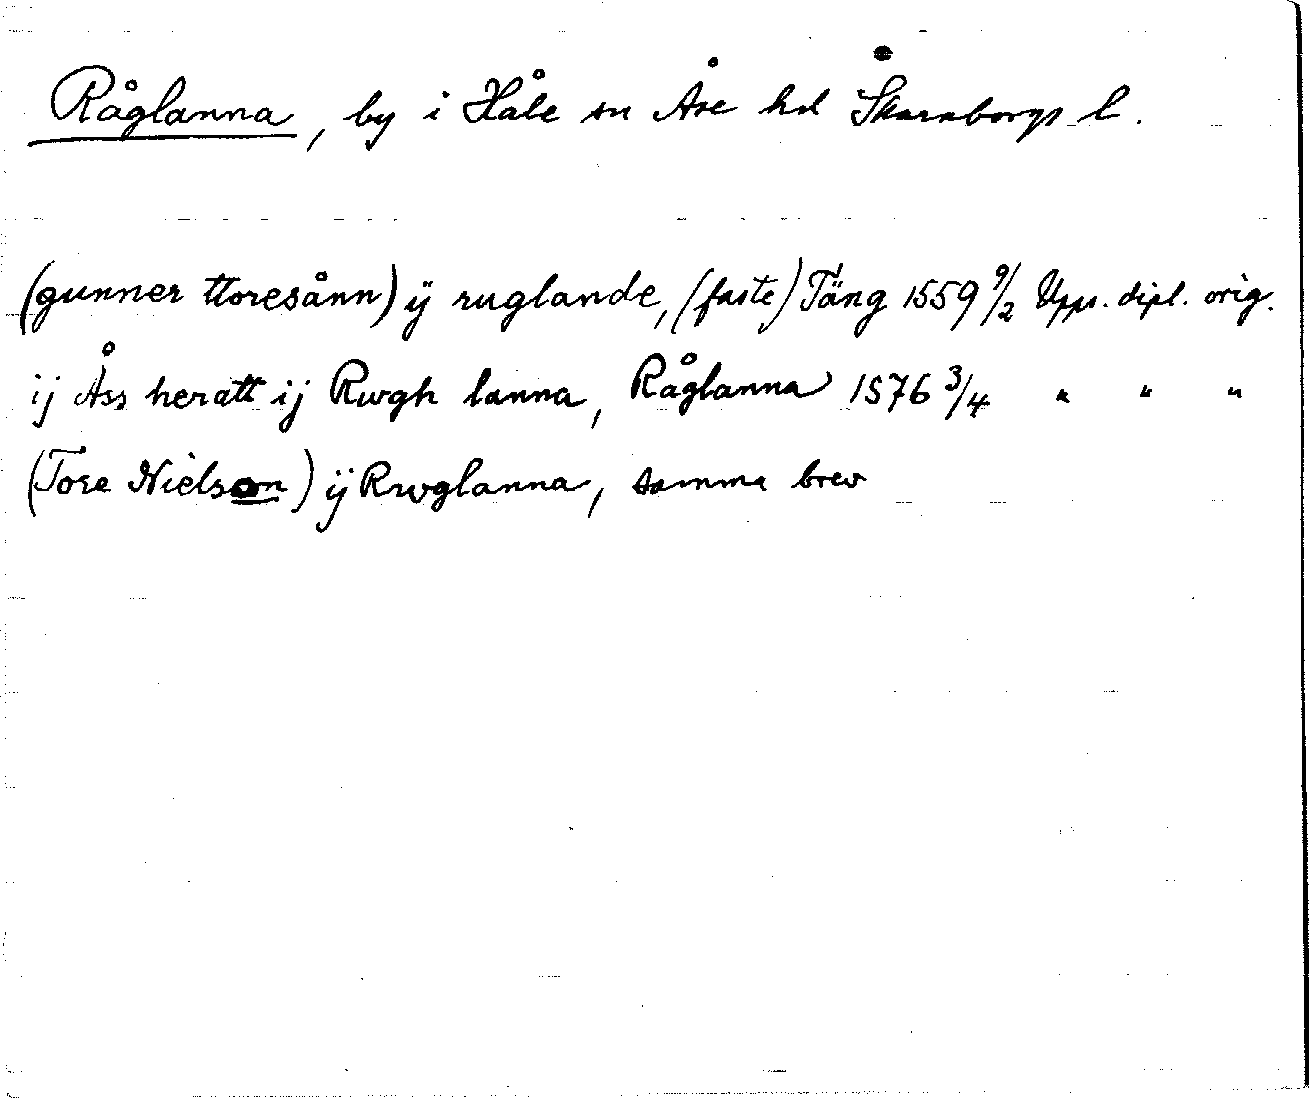 Råglanna, by i Håle sn Åse hd Skaraborgs l.
(gunner ttoresånn) ÿ ruglande, (faste) Täng 1559 9/2 Upps. dipl. orig.
ij Åss heratt ij Rwgh lanna, Råglanna 1576 3/4 " " "
(Tore Nielson) ÿ Rwglanna, samma brev